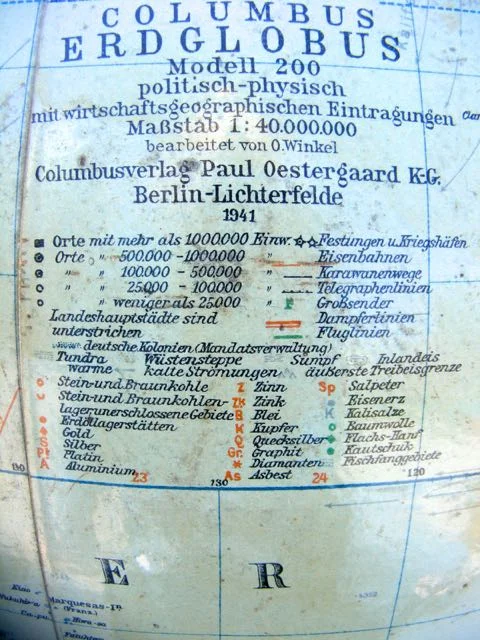 COLUMBUS
ERDGLOBUS
Modell 200
politisch-physisch
mit wirtschaftsgeographischen Eintragungen
Maßstab 1:40.000.000
bearbeitet von O.Winkel
Columbusverlag Paul Oestergaard K-G.
Berlin-Lichterfelde
1941
Orte mit mehr als 1000.000 Einw. Festungen u.Kriegshäfen
Orte " 500.000 - 1000.000 " Eisenbahnen
" " 100.000 - 500.000 " Karawanenwege
" " 25.000 - 100.000 " Telegraphenlinien
" " weniger als 25.000 " F Großsender
Landeshauptstädte sind Dampferlinien
unterstrichen Fluglinien
deutsche Kolonien (Mandatsverwaltung)
Tundra Wüstensteppe Sumpf Inlandeis
warme kalte Strömungen äußerste Treibeisgrenze
Stein-und Braunkohle Z Zinn Sp Salpeter
Stein-und Braunkohlen- Zk Zink Eisenerz
lager unerschlossene Gebiete B Blei K Kalisalze
Erdöllagerstätten K Kupfer Baumwolle
Gold Q Quecksilber Flachs-Hanf
S Silber Gr. Graphit Kautschuk
Pt Platin Diamanten Fischfanggebiete
A Aluminium 23 As Asbest 24
130 130 120
E R
Marquesas-In
(Franz.)